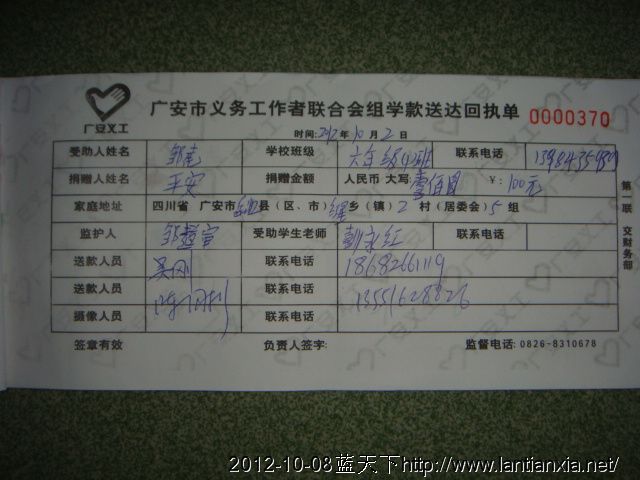 广安义工
广安市义务工作者联合会组学款送达回执单 0000370
时间:2012年10月2日
受助人姓名 邹 学校班级 六年级 班 联系电话
捐赠人姓名 平安 捐赠金额 人民币 大写:壹佰圆 ¥:100元
家庭地址 四川省 广安市 县(区、市) 乡(镇)2村(居委会)5组
监护人 邹 受助学生老师 彭永红 联系电话
送款人员 吴刚 联系电话 18682661119
送款人员 联系电话 13551628826
摄像人员 联系电话
签章有效 负责人签字: 监督电话:0826-8310678
第一联 交财务部
2012-10-08蓝天下http://www.lantianxia.net/